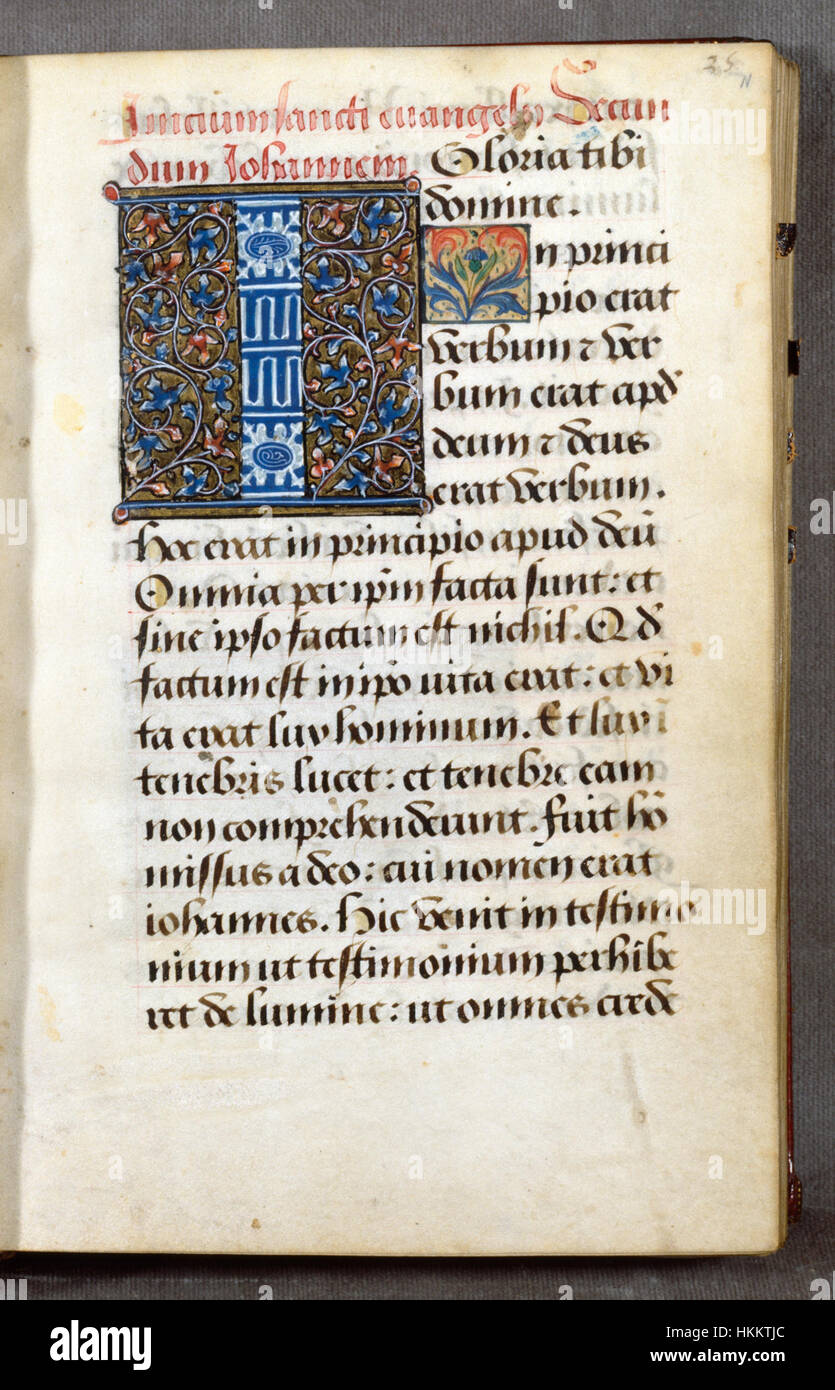 25
11
Inicium sancti euangelij Secun
dum Johannem. Gloria tibi
domine.
In princi
pio erat
verbum ⁊ ver
bum erat apd̄
deum ⁊ deus
erat verbum.
hoc erat in principio apud deū
Omnia per ip̄m facta sunt: et
sine ipso factum est nichil. Qd̄
factum est in ip̄o uita erat: et vi
ta erat lux hominum. Et lux ī
tenebris lucet: et tenebre eam
non comprehenderunt. fuit hō
missus a deo: cui nomen erat
iohannes. hic venit in testimo
nium ut testimonium perhibe
ret de lumine: ut omnes crede
alamy
Image ID: HKKTJC
www.alamy.com